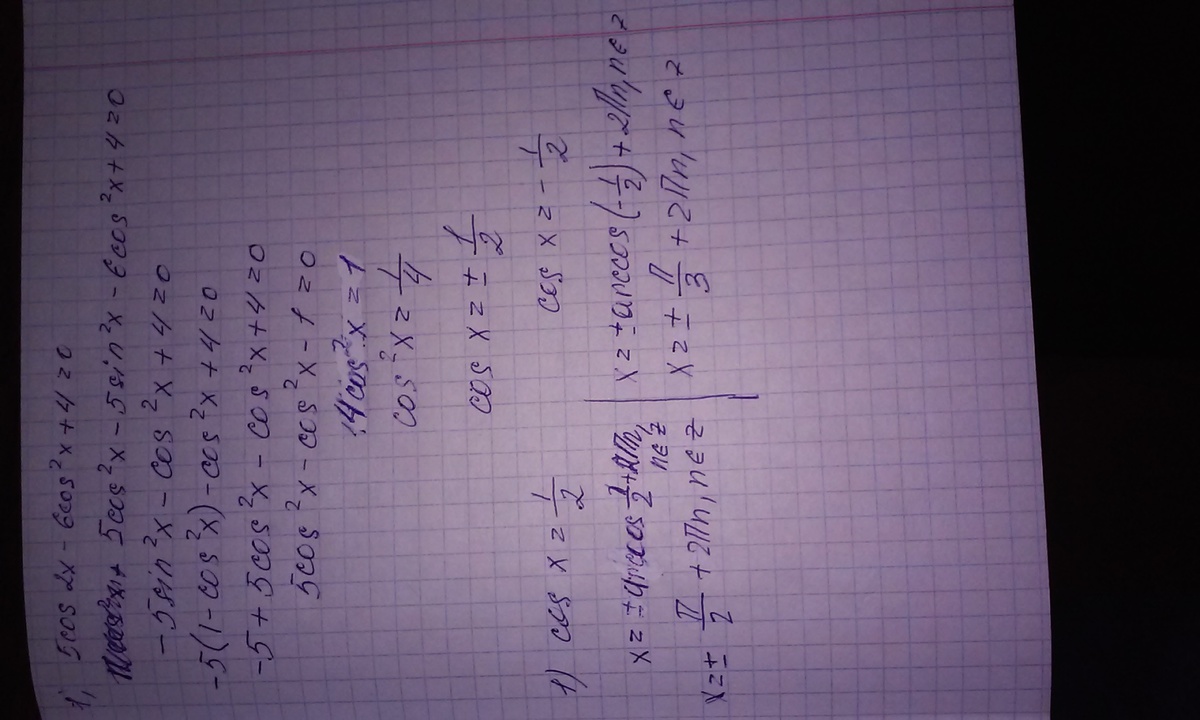 1, 5cos 2x - 6cos²x + 4 = 0
5cos²x - 5sin²x - 6cos²x + 4 = 0
-5sin²x - cos²x + 4 = 0
-5(1 - cos²x) - cos²x + 4 = 0
-5 + 5cos²x - cos²x + 4 = 0
5cos²x - cos²x - 1 = 0
4cos²x = 1
cos²x = 1/4
cos x = ± 1/2
1) cos x = 1/2
x = ± arccos 1/2 + 2Пn, n ∈ z
x = ± П/2 + 2Пn, n ∈ z
cos x = - 1/2
x = ± arccos (-1/2) + 2Пn, n ∈ z
x = ± П/3 + 2Пn, n ∈ z